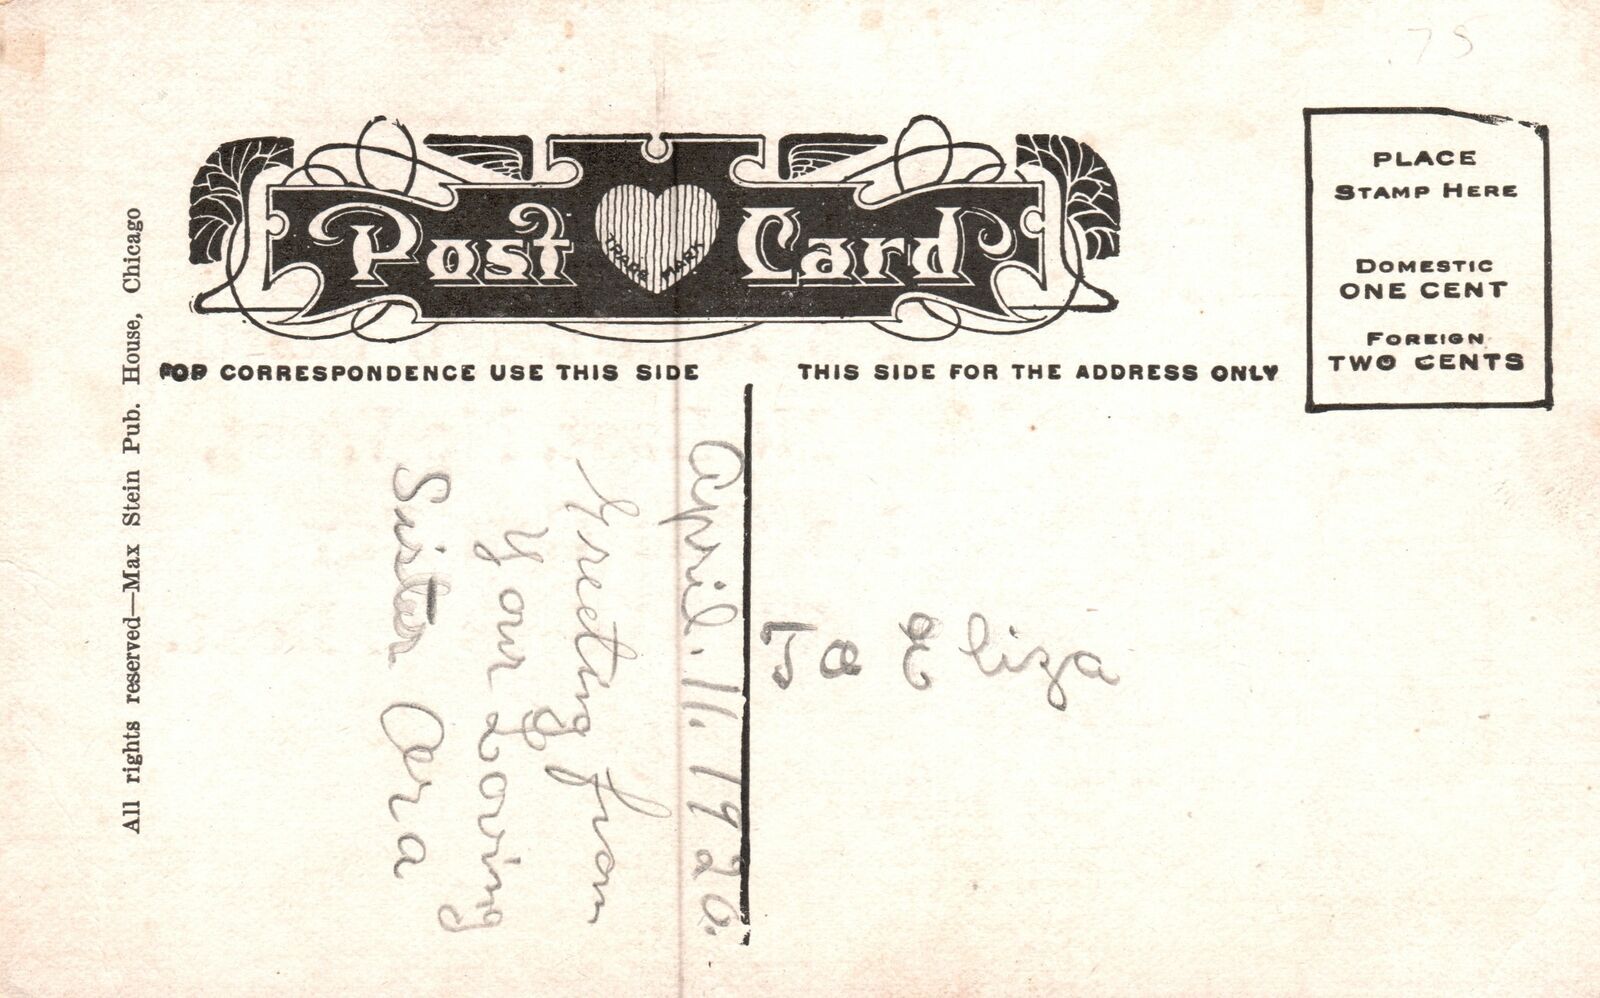 75
Post Card
TRADE MARK
PLACE
STAMP HERE
DOMESTIC
ONE CENT
FOREIGN
TWO CENTS
FOR CORRESPONDENCE USE THIS SIDE
THIS SIDE FOR THE ADDRESS ONLY
All rights reserved—Max Stein Pub. House, Chicago
April. 11. 1920.
Greeting from
your Loving
Sister Ora
To Eliza